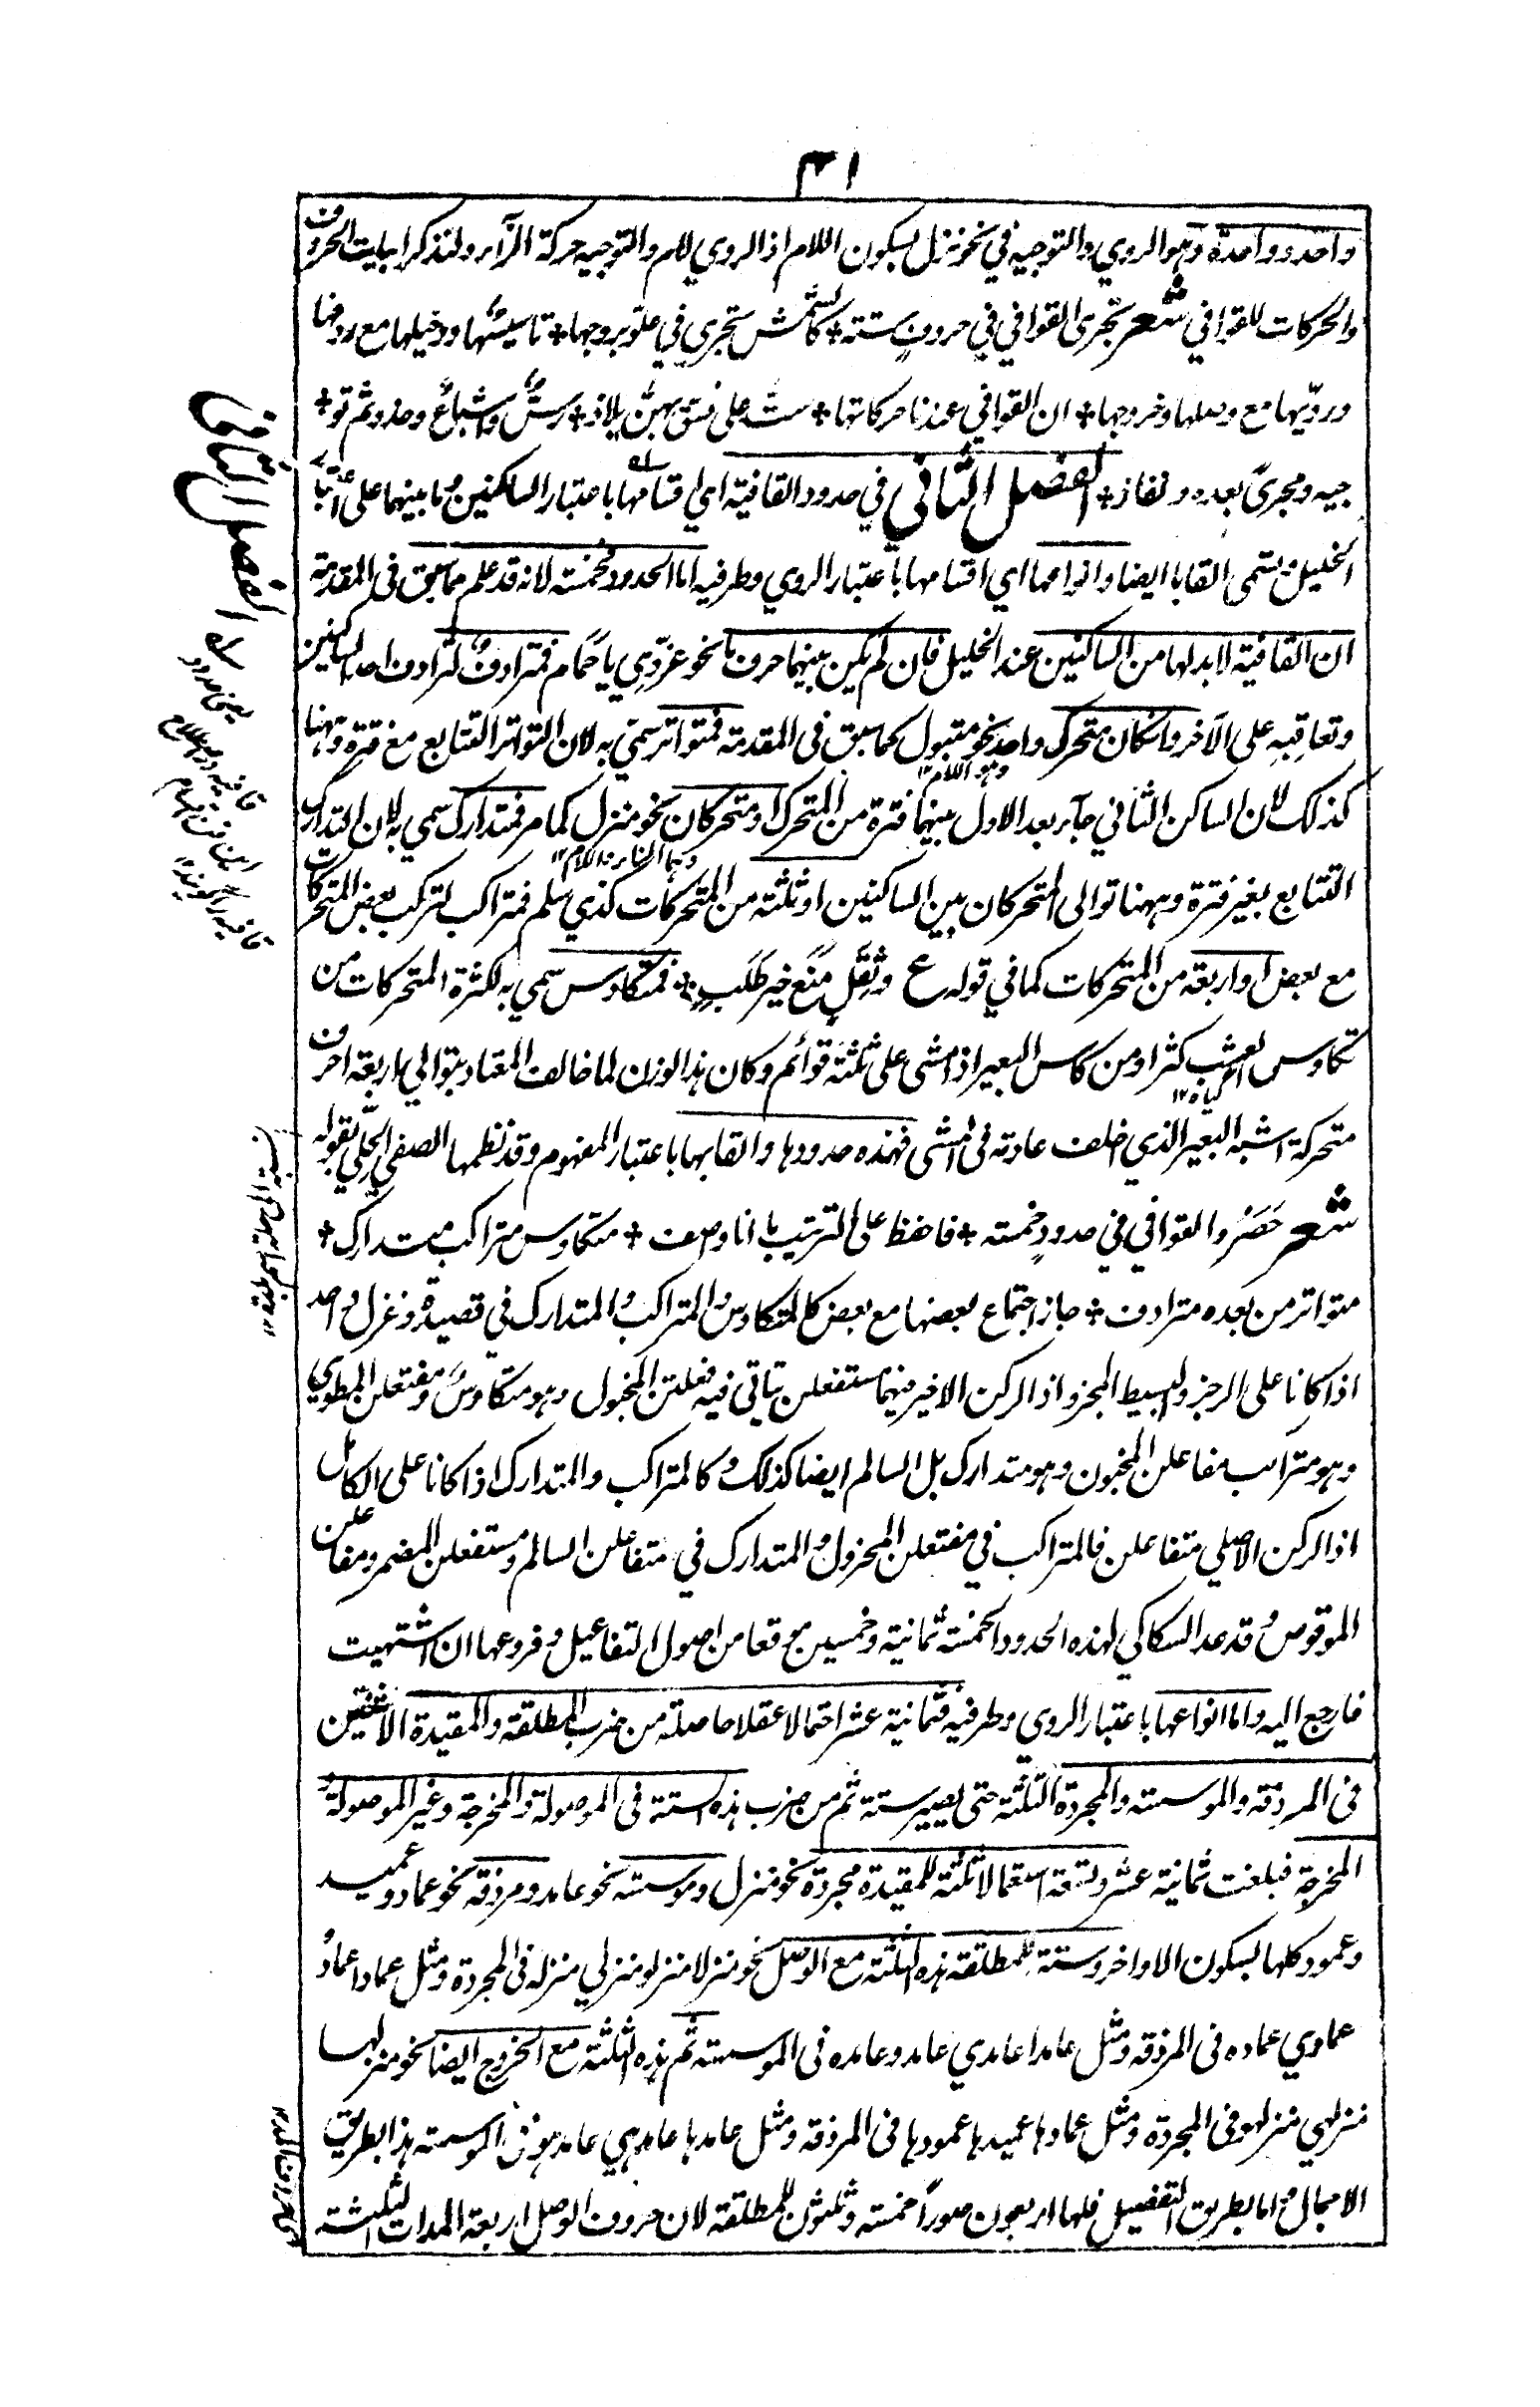 ٣١
واحد وواحدة وهو الروي والتوجيه في نحو نزل بسكون اللام اذ الروي لام والتوجيه حركة الزاء ولنذكر ابيات الحروف
والحركات للقوافي شعر تجرى القوافي في حروف ستة + كالشمس تجري في علو بروجها + تاسيسها ودخيلها مع ردفها
ورويّها مع وصلها وخروجها + ان القوافي عندنا حركاتها + ست على نسق بهن يلاذ + رسّ واشباع وحذو ثم تو +
جيه ومجرىً بعده ونفاذ + الفصل الثاني في حدود القافية اي اقسامها باعتبار الساكنين وما بينهما على
الخليل ويسمى القابا ايضا وانواعها اي اقسامها باعتبار الروي وطرفيه اما الحدود فخمسة لانه قد علم مما سبق في المقدمة
ان القافية لا بد لها من الساكنين عند الخليل فان لم يكن بينهما حرف ما نحو غرّدي يا حمام فمترادف لترادف احد الساكنين
وتعاقبه على الآخر وان كان متحرك واحد نحو مقبول كما سبق في المقدمة فمتواتر سمي به لان التواتر التتابع مع فترة وههنا
وهو اللام ١٢
كذلك لان الساكن الثاني جاء بعد الاول بينهما فترة من المتحرك او متحركان نحو منزل كما مر فمتدارك سمي به لان التدارك
وهما الزاء واللام ١٢
التتابع بغير فترة وههنا توالى المتحركان بين الساكنين او ثلثة من المتحركات كذي سلم فمتراكب لتركب بعض المتحركات
مع بعض او اربعة من المتحركات كما في قوله ع وثقل منع خير طلب + فمتكاوس سمي به لكثرة المتحركات من
تكاوس العشب كثر او من كاس البعير اذا مشى على ثلثة قوائم وكان هذا الوزن لما خالف المعتاد بتوالي اربعة احرف
گیاه ١٢
متحركة اشبه البعير الذي خلف عادته في المشى فهذه حدودها والقابها باعتبار المفهوم وقد نظمها الصفي الحلّي بقوله
شعر حَصَرُوا القوافي في حدودٍ خمسته + فاحفظ على الترتيب ما انا واصف + متكاوس متراكب متدارك +
متواتر من بعده مترادف + جاز اجتماع بعضها مع بعض كالمتكاوس والمتراكب والمتدارك في قصيدة وغزل واحد
اذا كانا على الرجز والبسيط المجزو اذ الركن الاخير منهما مستفعلن يتاتى فيه فعلتن المخبول وهو متكاوس ومفتعلن المطوي
وهو متراكب مفاعلن المخبون وهو متدارك بل السالم ايضا كذلك وكالمتراكب والمتدارك اذا كانا على الكامل
اذ الركن الاصلي متفاعلن فالمتراكب في مفتعلن المخزول والمتدارك في متفاعلن السالم ومستفعلن المضمر ومفاعلن
الموقوص وقد عد السكاكي لهذه الحدود الخمسة ثمانية وخمسين موقعا من اصول التفاعيل وفروعها ان اشتهيت
فارجع اليه واما انواعها باعتبار الروي وطرفيه فثمانية عشر احتمالا عقلا حاصلة من ضرب المطلقة والمقيدة الاثنتين
في المردفة والموسسة والمجردة الثلثة حتى يصير ستة ثم من ضرب هذه الستة في الموصولة والمخرجة وغير الموصولة و
المخرجة فبلغت ثمانية عشر وتسعة استعمالا ثلثة للمقيدة مجردة نحو منزل وموسسة نحو عامد ومردفة نحو عماد وعميد
وعمود كلها بسكون الاواخر وستة للمطلقة هذه الثلثة مع الوصل نحو منزلا منزلو منزلي منزله في المجردة ومثل عمادا عمادُ
عمادي عماده في المردفة ومثل عامدا عامدي عامدو عامده في الموسسة ثم هذه الثلثة مع الخروج ايضا نحو منزلها
منزلهي منزلهو في المجردة ومثل عمادها عميدها عمودها في المردفة ومثل عامدها عامدهي عامدهو في الموسسة هذا بطريق
الاجمال واما بطريق التفصيل فلها اربعون صورا خمسة وثلثون للمطلقة لان حروف الوصل اربعة المدات الثلثة
الفصل الثانى